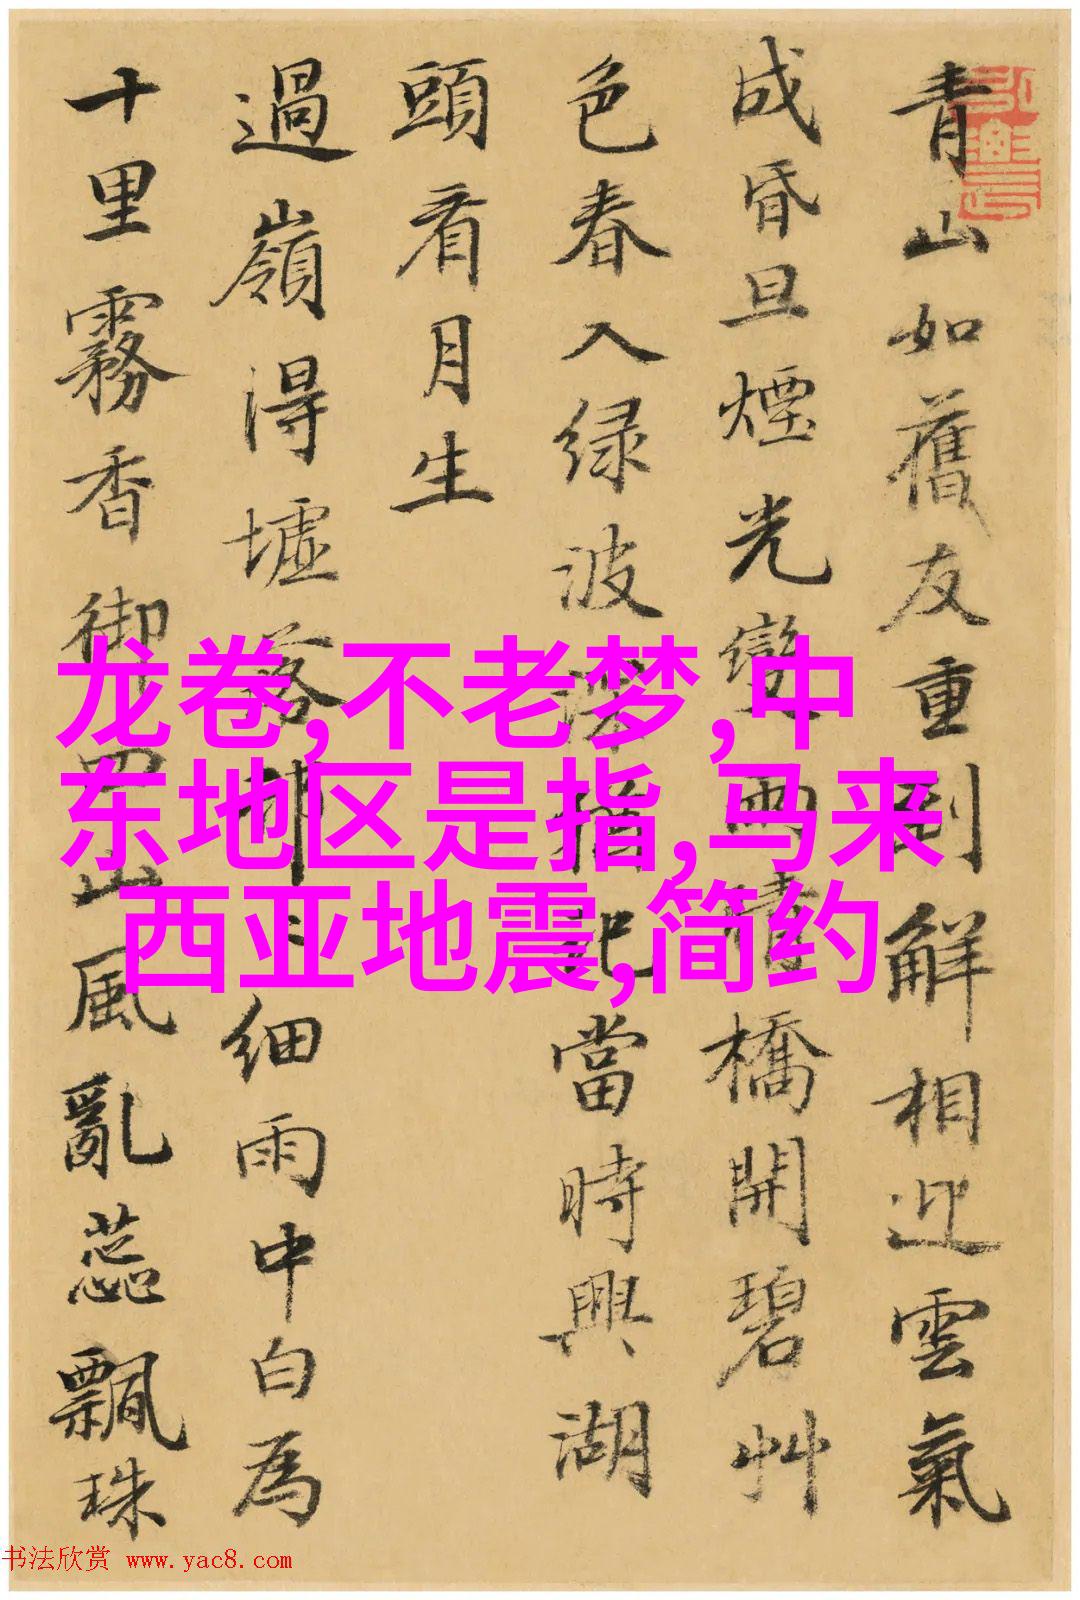 青山如舊友重到解相迎雲氣
成昏旦煙光變雨晴橋開碧艸
色春入绿波
指
當時興湖
頭看月生
過嶺得墟落
細雨中白為
十里霧香御
山風亂蕊飄珠
龙卷,不老梦,中
东地区是指,马来
西亚地震,简约
书法欣赏 www.yac8.com